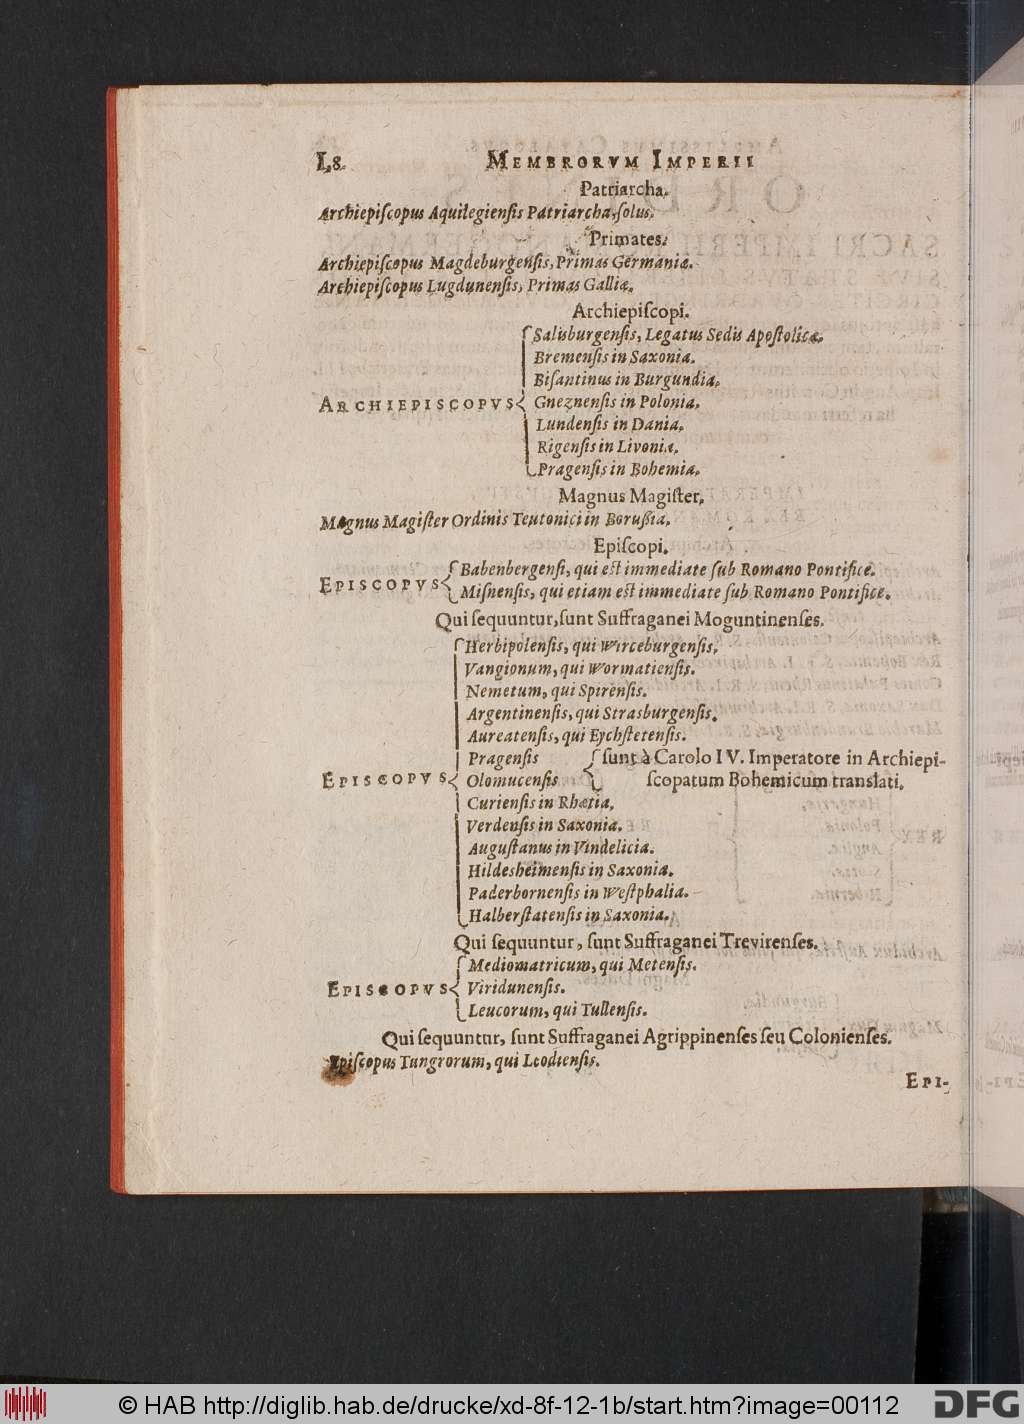 L8. MEMBRORVM IMPERII
Patriarcha.
Archiepiſcopus Aquilegienſis Patriarcha, ſolus.
Primates.
Archiepiſcopus Magdeburgenſis, Primas Germaniæ.
Archiepiſcopus Lugdunenſis, Primas Galliæ.
Archiepiſcopi.
Salisburgenſis, Legatus Sedis Apoſtolicæ.
Bremenſis in Saxonia.
Biſantinus in Burgundia.
ARCHIEPISCOPVS Gneznenſis in Polonia.
Lundenſis in Dania.
Rigenſis in Livonia.
Pragenſis in Bohemia.
Magnus Magiſter.
Magnus Magiſter Ordinis Teutonici in Borußia.
Epiſcopi.
Babenbergenſi, qui eſt immediate ſub Romano Pontifice.
EPISCOPVS
Miſnenſis, qui etiam eſt immediate ſub Romano Pontifice.
Qui ſequuntur, ſunt Suffraganei Moguntinenſes.
Herbipolenſis, qui Wirceburgenſis.
Vangionum, qui Wormatienſis.
Nemetum, qui Spirenſis.
Argentinenſis, qui Strasburgenſis.
Aureatenſis, qui Eychſtetenſis.
Pragenſis ſunt à Carolo IV. Imperatore in Archiepi-
EPISCOPVS Olomucenſis ſcopatum Bohemicum translati.
Curienſis in Rhætia.
Verdenſis in Saxonia.
Auguſtanus in Vindelicia.
Hildesheimenſis in Saxonia.
Paderbornenſis in Weſtphalia.
Halberſtatenſis in Saxonia.
Qui ſequuntur, ſunt Suffraganei Trevirenſes.
Mediomatricum, qui Metenſis.
EPISCOPVS Viridunenſis.
Leucorum, qui Tullenſis.
Qui ſequuntur, ſunt Suffraganei Agrippinenſes ſeu Colonienſes.
Epiſcopus Tungrorum, qui Leodienſis.
EPI-
© HAB http://diglib.hab.de/drucke/xd-8f-12-1b/start.htm?image=00112
DFG